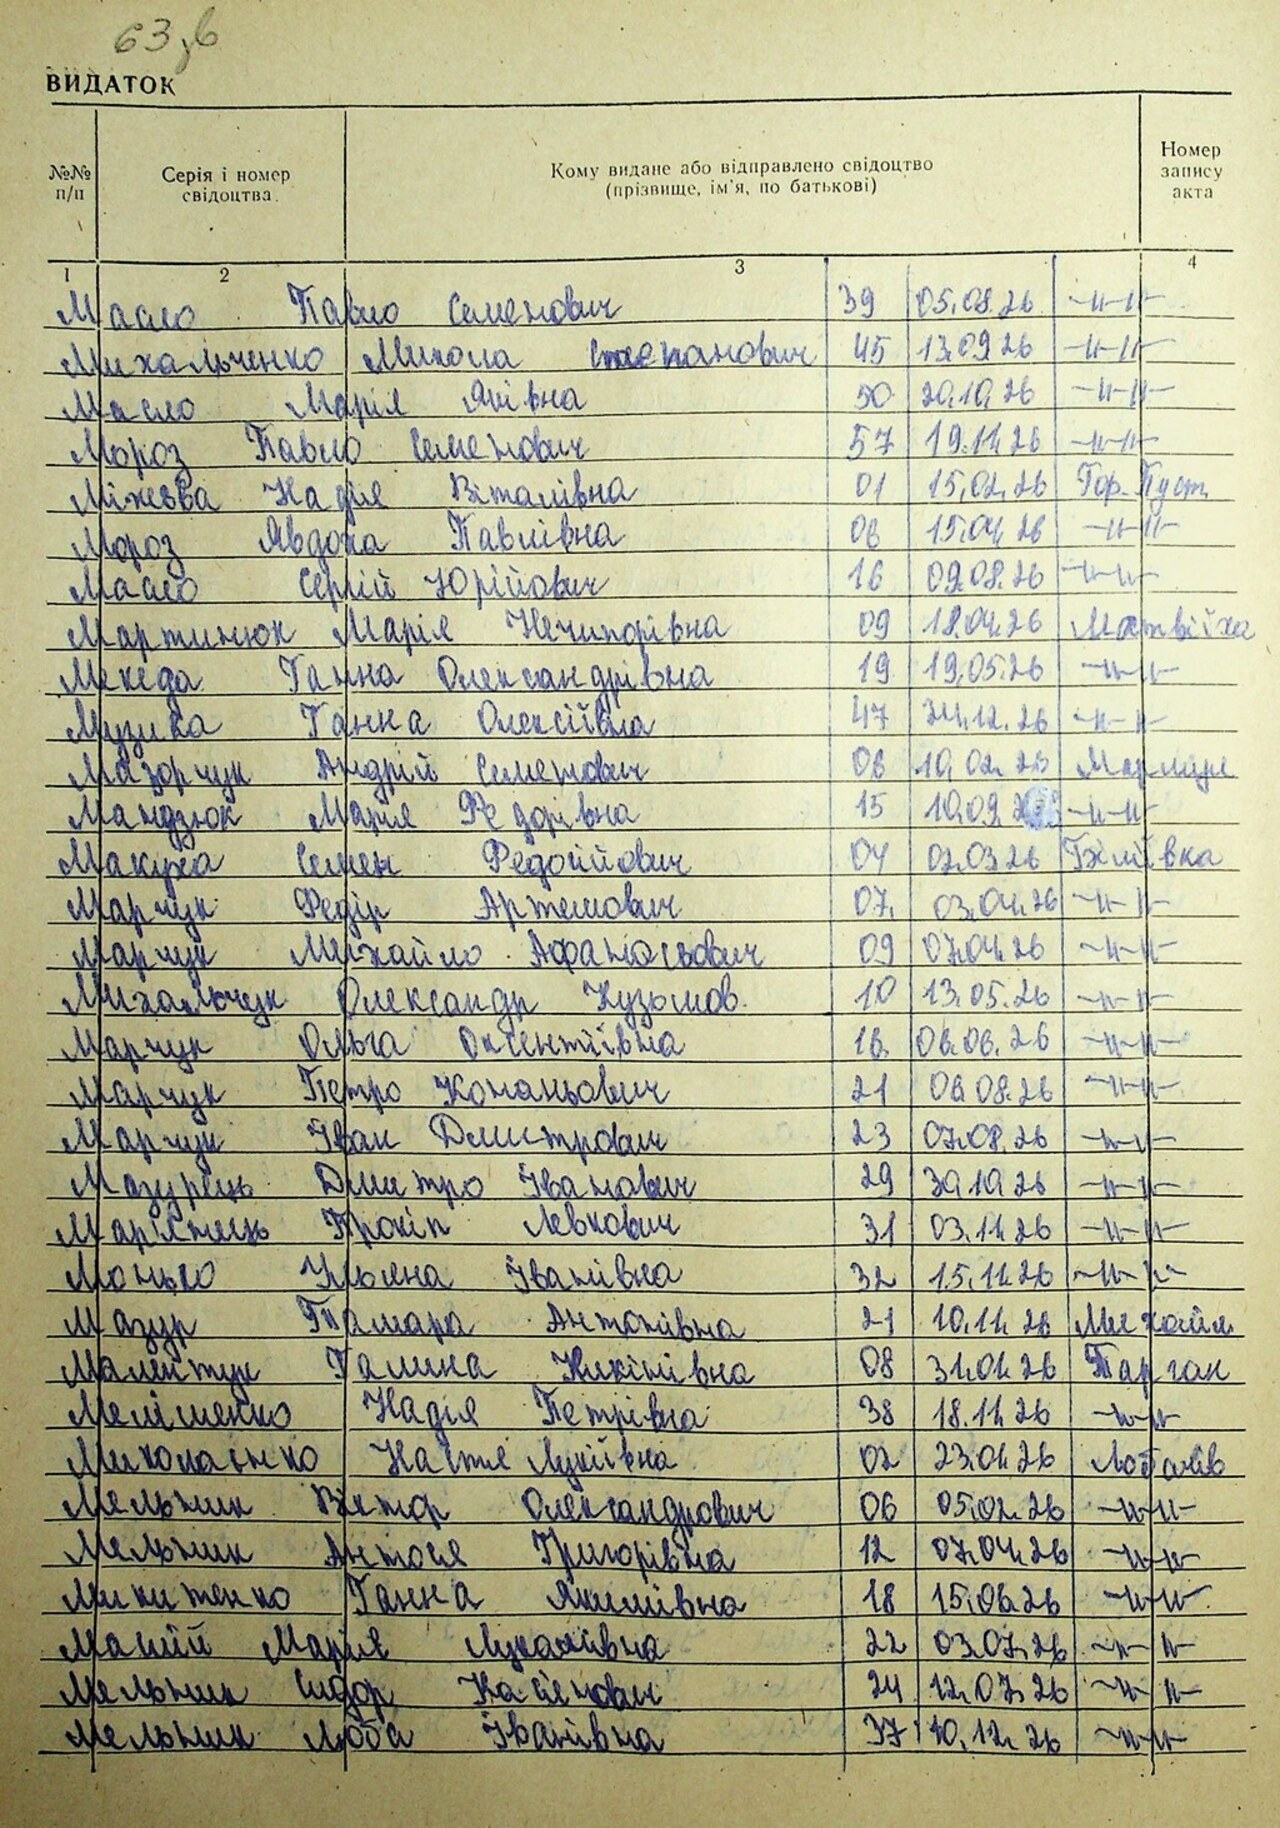 63зв
ВИДАТОК
№№ п/п Серія і номер свідоцтва Кому видане або відправлено свідоцтво (прізвище, ім'я, по батькові) Номер запису акта
1 2 3 4
Масло Павло Семенович 39 05.08.26 -"-"-
Михальченко Микола Степанович 45 13.09.26 -"-"-
Масло Марія Яківна 50 20.10.26 -"-"-
Мороз Павло Семенович 57 19.11.26 -"-"-
Надія Віталівна 01 15.02.26 Гор. Пуст.
Мороз Явдоха Павлівна 06 15.04.26 -"-"-
Масло Сергій Юрійович 16 09.08.26 -"-"-
Мартинюк Марія Нечипорівна 09 18.04.26 Матвіїха
Мекеда Ганна Олександрівна 19 19.05.26 -"-"-
Музика Ганна Олексіївна 47 24.12.26 -"-"-
Мазорчук Андрій Семенович 06 10.02.26
Мандзюк Марія Федорівна 15 10.09. -"-"-
Макуха Семен Федосійович 04 02.03.26
Марчук Федір Артемович 07. 03.04.26 -"-"-
Марчук Михайло Афанасьович 09 07.04.26 -"-"-
Михальчук Олександр Кузьмов. 10 13.05.26 -"-"-
Марчук Ольга Оксентіївна 16. 06.06.26 -"-"-
Марчук Петро Кононьович 21 06.08.26 -"-"-
Марчук Іван Дмитрович 23 07.08.26 -"-"-
Мазурець Дмитро Іванович 29 30.10.26 -"-"-
Мар'янець Прокіп Левкович 31 03.11.26 -"-"-
Монько Уляна Іванівна 32 15.11.26 -"-"-
Мазур Тамара Антонівна 21 10.11.26 Михайл.
Малинчук Галина Никінівна 08 31.01.26 Тарган
Мелішенко Надія Петрівна 38 18.11.26 -"-"-
Настя Лукіївна 02 23.01.26 Лобачів
Мельник Віктор Олександрович 06 05.02.26 -"-"-
Мельник Антося Григорівна 12 07.04.26 -"-"-
Микитенко Ганна Якимівна 18 15.06.26 -"-"-
Малій Марія Лукашівна 22 03.07.26 -"-"-
Мельник Сидор Касянович 24 12.07.26 -"-"-
Мельник Люба Іванівна 37 10.12.26 -"-"-